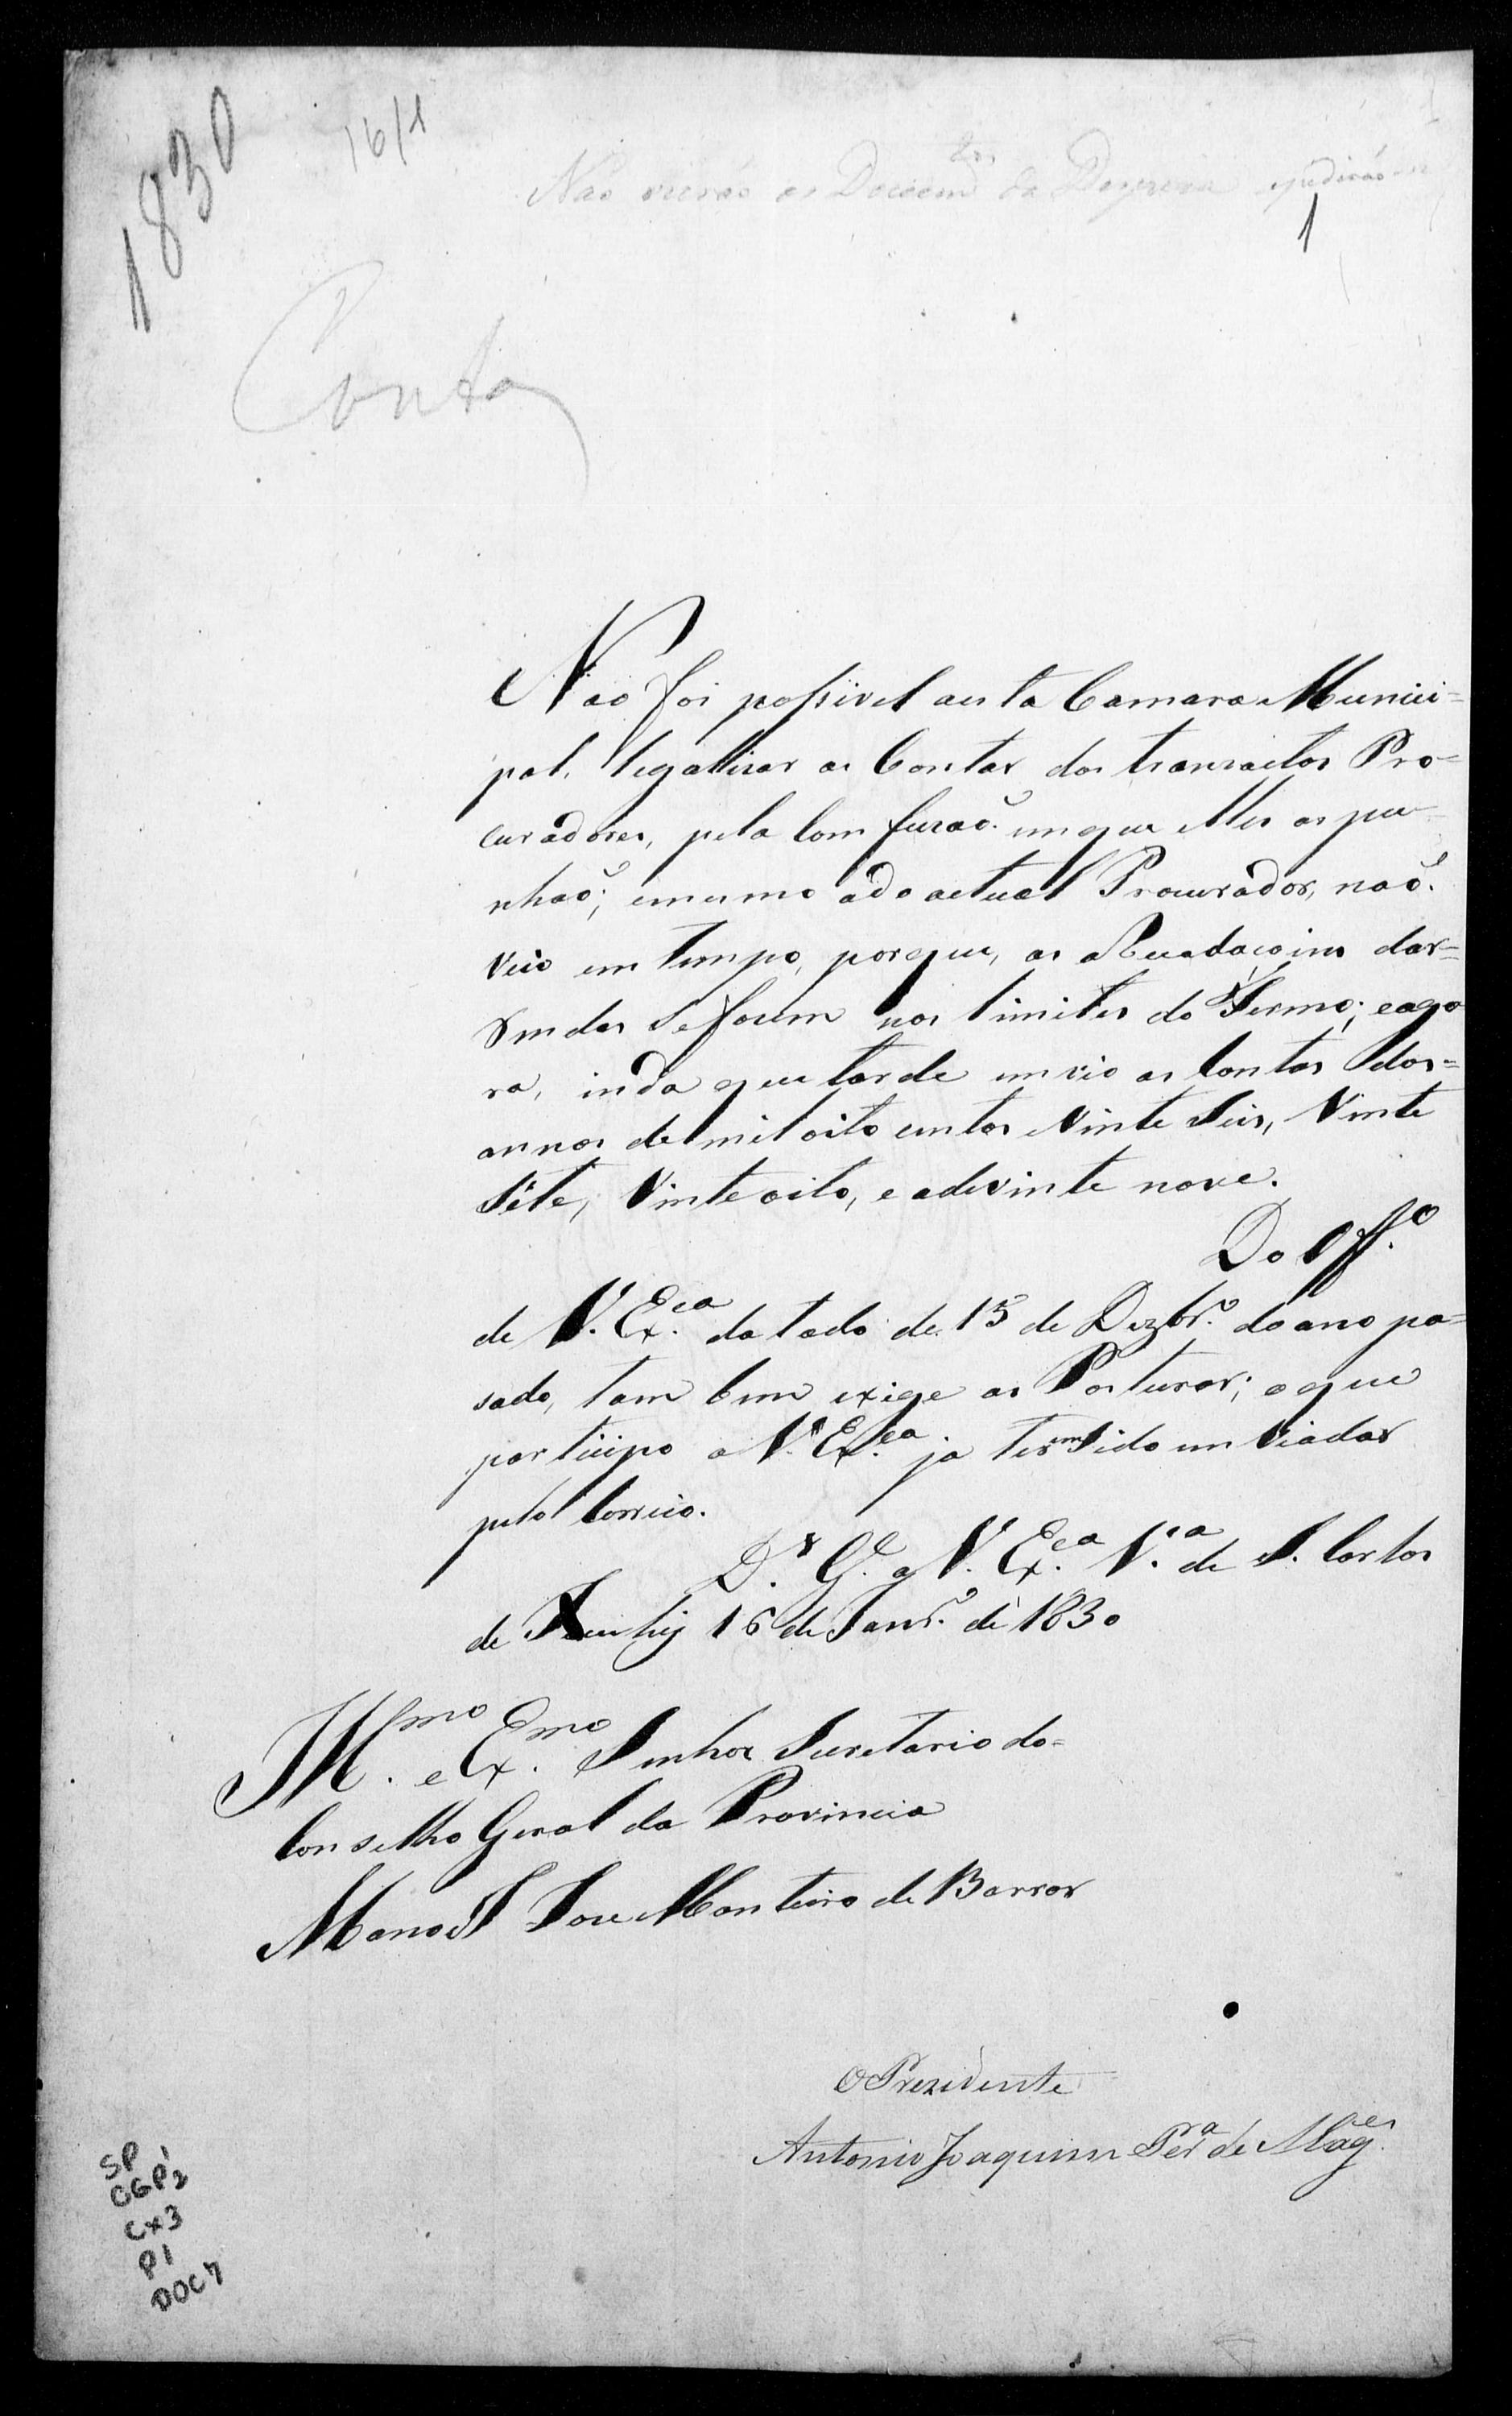 1830
16/1
Não vierão os Docum.tos da Despeza
1
Contas
Não foi possivel aesta Camara Munici=
pal, legalizar as Contas dos transactos Pro=
curadores, pela comfuzaõ emque elles as pu=
nhaõ; emesmo ado actual Procurador, naõ
veio em tempo, porque, as dar=
sefazem nos limites do Termo; eago
ra, inda que tarde envio as Contas dos=
annos de mil oito centos Vinte Seis, Vinte
Séte, Vinte oito, e adevinte nove.
Do Off.o
de V. Ex.cia datado de 15 de Dezbr.o do ano pa=
sado, tam bem exige as Posturas; o que
participo a V. Ex.cia ja terem Sido em Viadas
pelo Correio.
D.s G.e a V. Ex.cia V.a de S. Carlos
de 16 de Janr.o de 1830
Ill.mo e Ex.mo Senhor Secretario do=
Conselho Geral da Provincia
Manoel Joze Monteiro de Barros
O Prezidente
Antonio Joaquim Per.a de Mag.es
SP
CGP1
2
CX3
P1
DOC7